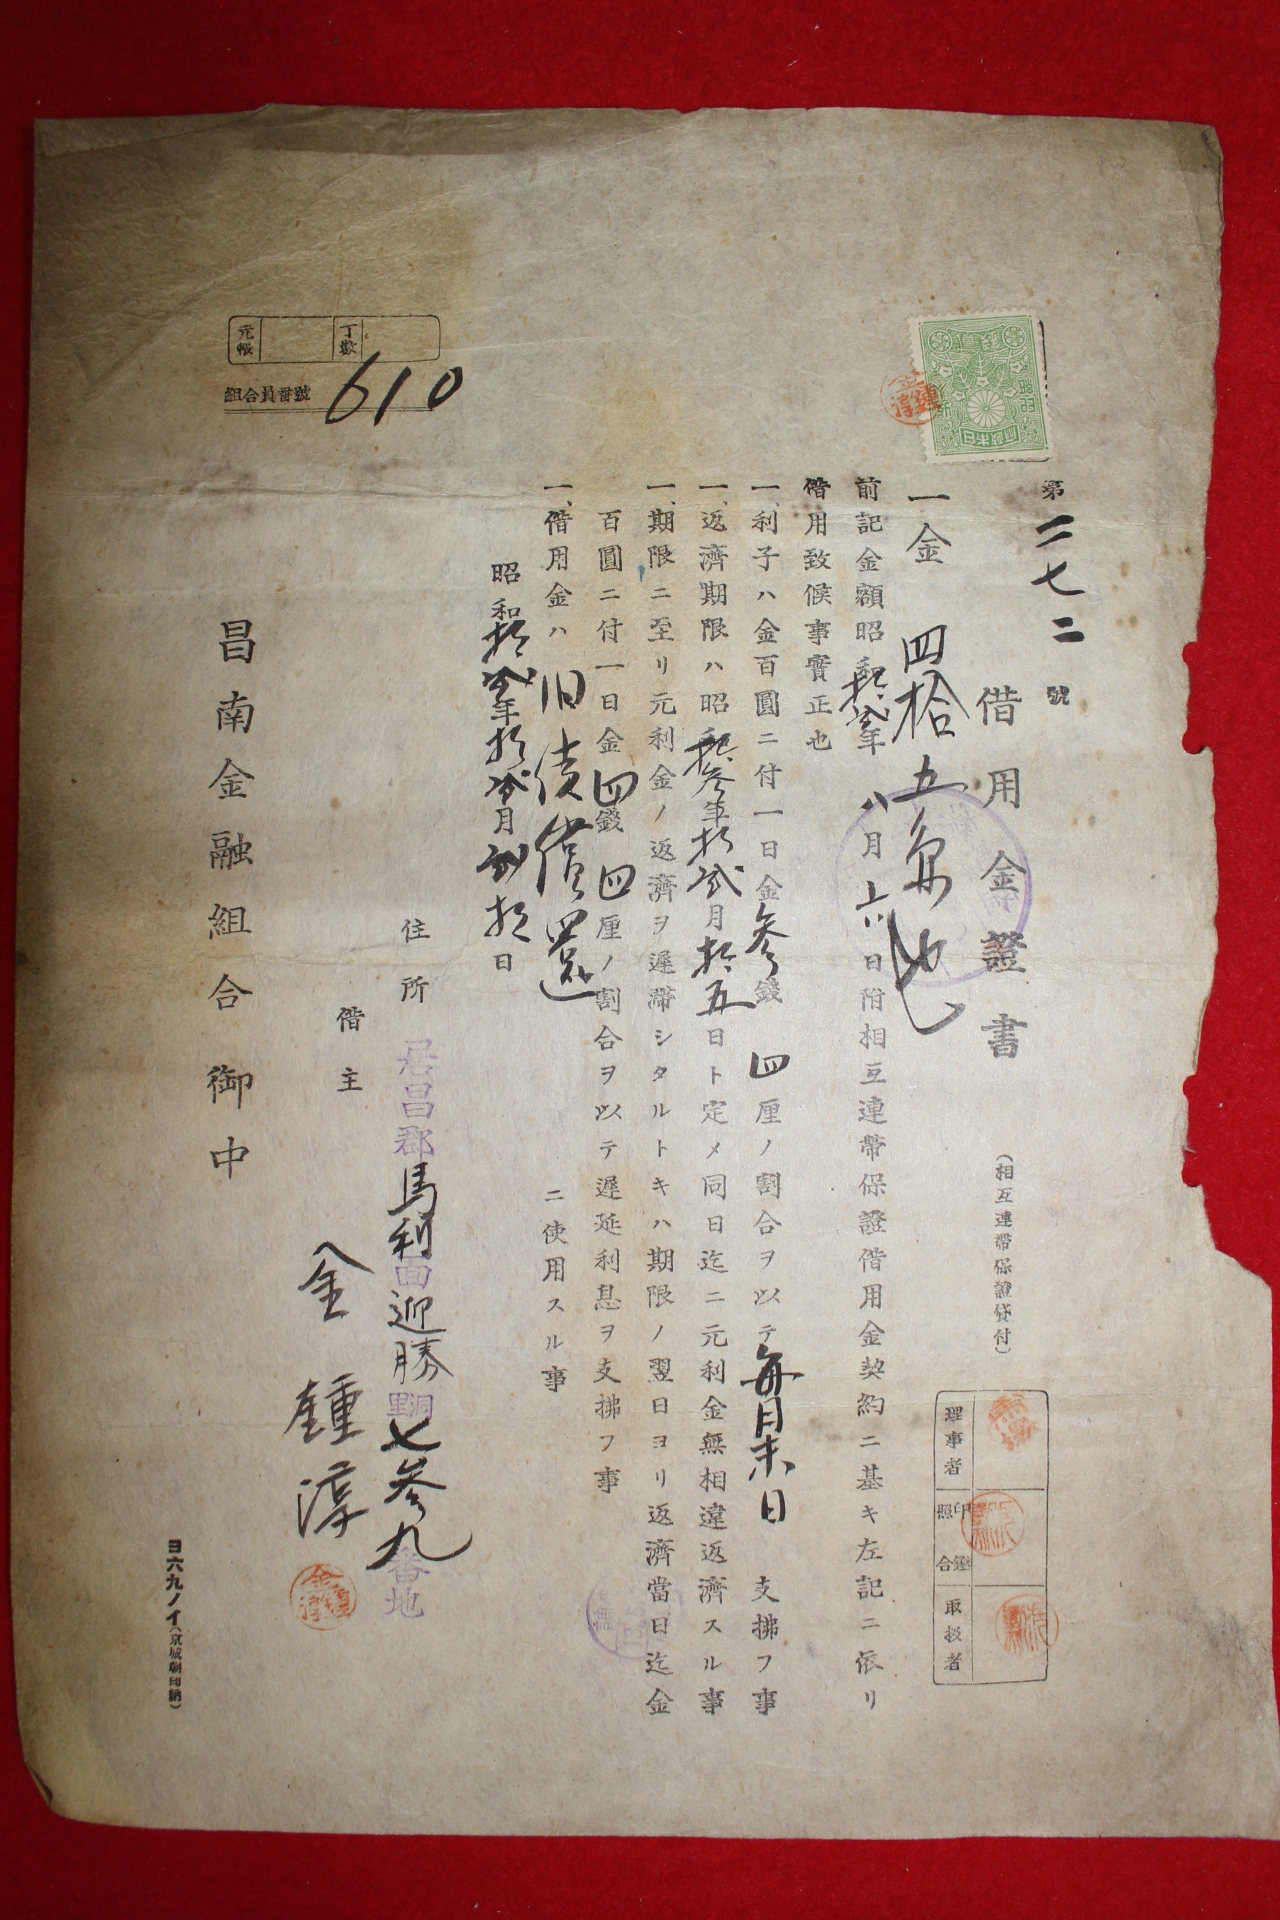 第二七二號
借用金證書
(相互連帶保證貸付)
理事者
印鑑照合
取扱者
一金 四拾五円也
前記金額昭和拾貳年八月六日附相互連帶保證借用金契約ニ基キ左記ニ依リ
借用致候事實正也
一、利子ハ金百圓ニ付一日金參錢四厘ノ割合ヲ以テ每月末日支拂フ事
一、返濟期限ハ昭和拾參年拾貳月拾五日ト定メ同日迄ニ元利金無相違返濟スル事
一、期限ニ至リ元利金ノ返濟ヲ遲滯シタルトキハ期限ノ翌日ヨリ返濟當日迄金
百圓ニ付一日金四錢四厘ノ割合ヲ以テ遲延利息ヲ支拂フ事
一、借用金ハ旧債償還ニ使用スル事
昭和拾貳年拾貳月貳拾日
住所 居昌郡馬利面迎勝洞里七參九番地
借主 金鍾淳
金鍾淳
昌南金融組合御中
元帳
丁數
組合員番號 610
ヨ六九ノイ(京城刷印納)
金鍾淳
日本政府